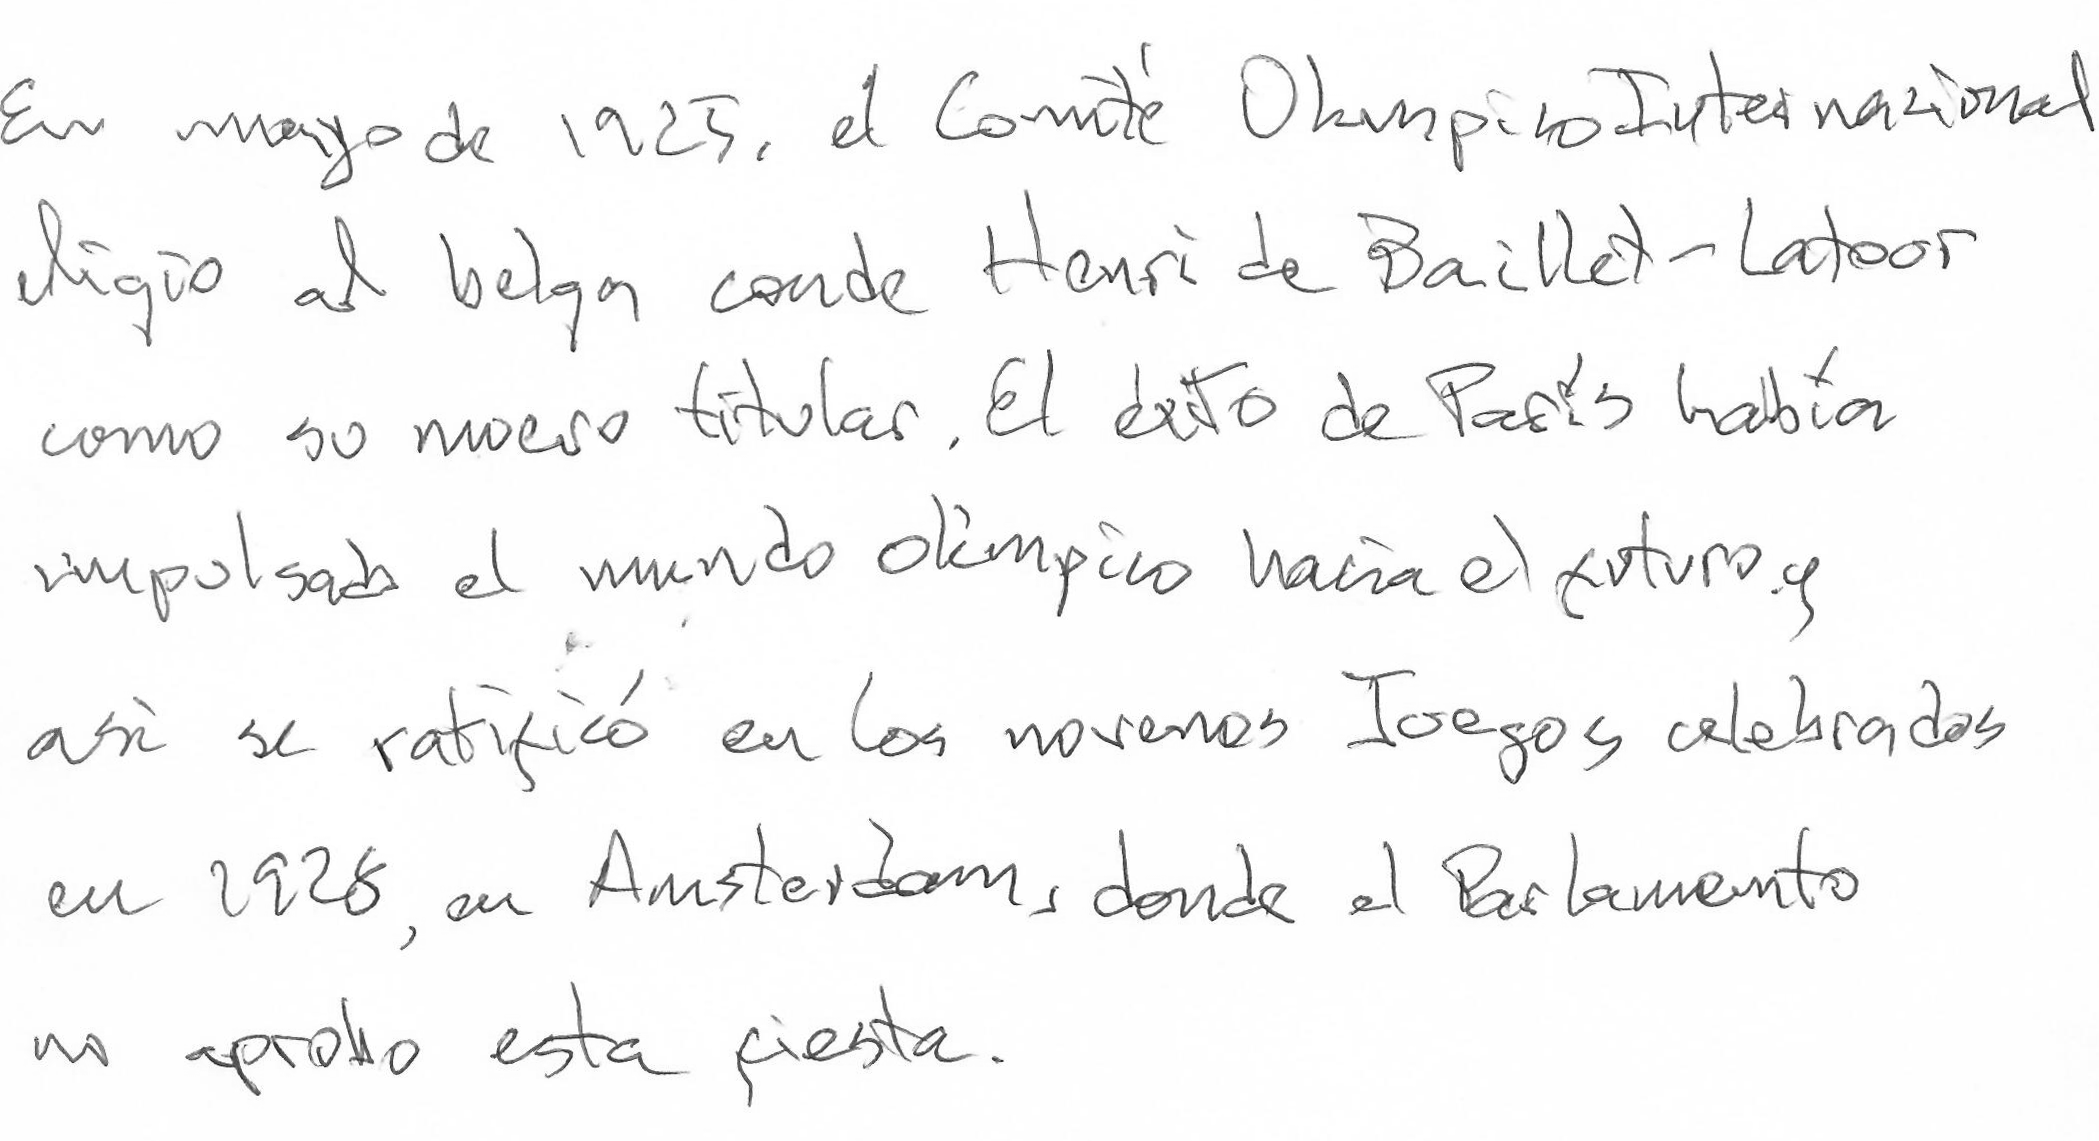 En mayo de 1925, el Comité Olímpico Internacional
eligió al belga conde Henri de Baillet-Latour
como su nuevo titular. El éxito de París había
impulsado el mundo olímpico hacia el futuro y
así se ratificó en los novenos Juegos celebrados
en 1928, en Amsterdam, donde el Parlamento
no aprobó esta fiesta.